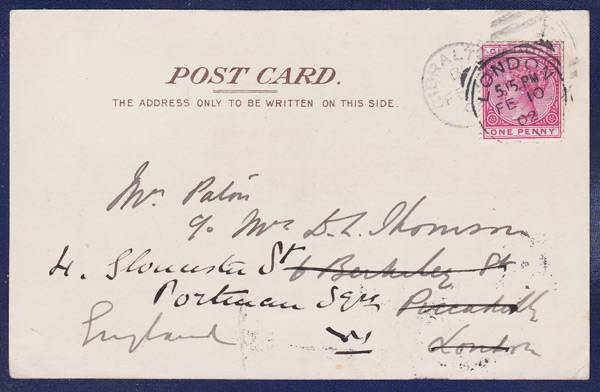 POST CARD.
THE ADDRESS ONLY TO BE WRITTEN ON THIS SIDE.
GIBRALT
FE
LONDON
5.15.PM
FE 10
02
ONE PENNY
Mrs Paton
c/o Mrs D. L. Thomson
4. Gloucester St 6 Berkeley St
Portman Sqre Piccadilly
England London